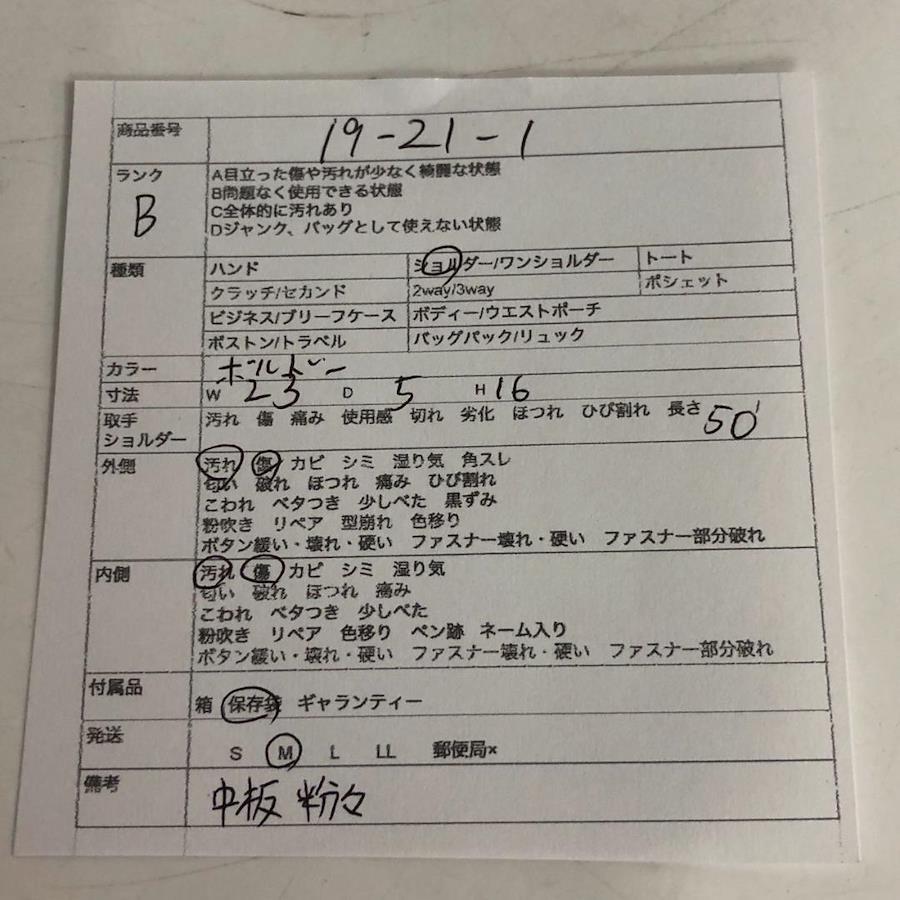 商品番号 19-21-1
ランク A目立った傷や汚れが少なく綺麗な状態
B B問題なく使用できる状態
C全体的に汚れあり
Dジャンク、バッグとして使えない状態
種類 ハンド ショルダー/ワンショルダー トート
クラッチ/セカンド 2way/3way ポシェット
ビジネス/ブリーフケース ボディー/ウエストポーチ
ボストン/トラベル バッグパック/リュック
カラー ボルドー
寸法 W 23 D 5 H 16
取手 汚れ 傷 痛み 使用感 切れ 劣化 ほつれ ひび割れ 長さ 50
ショルダー
外側 汚れ 傷 カビ シミ 湿り気 角スレ
匂い 破れ ほつれ 痛み ひび割れ
こわれ ベタつき 少しべた 黒ずみ
粉吹き リペア 型崩れ 色移り
ボタン緩い・壊れ・硬い ファスナー壊れ・硬い ファスナー部分破れ
内側 汚れ 傷 カビ シミ 湿り気
匂い 破れ ほつれ 痛み
こわれ ベタつき 少しべた
粉吹き リペア 色移り ペン跡 ネーム入り
ボタン緩い・壊れ・硬い ファスナー壊れ・硬い ファスナー部分破れ
付属品 箱 保存袋 ギャランティー
発送 S M L LL 郵便局×
備考 中板 粉々